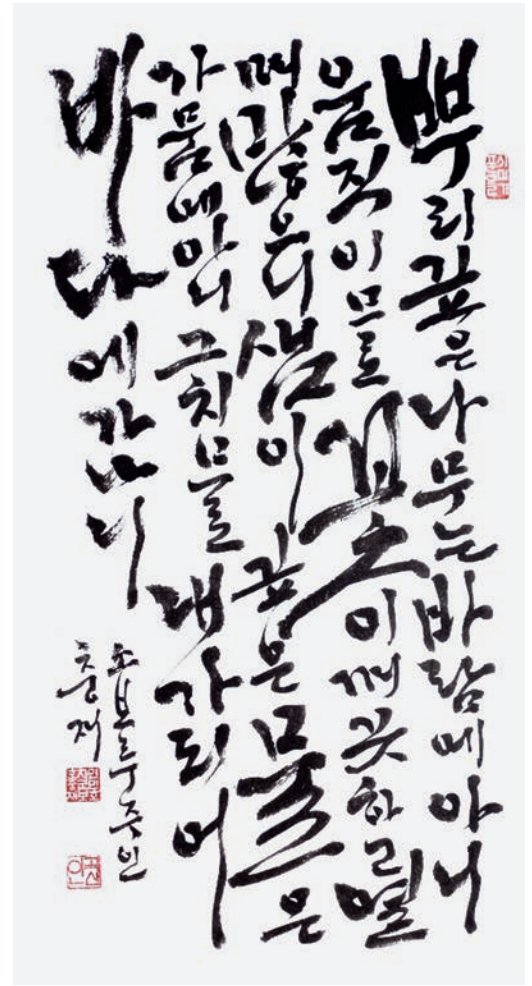 뿌리깊은나무는바람에아니
움직이므로꽃이깨끗하고열
매많으니샘이깊은물은
가뭄에아니그치므로내가되어
바다에가나니
주인